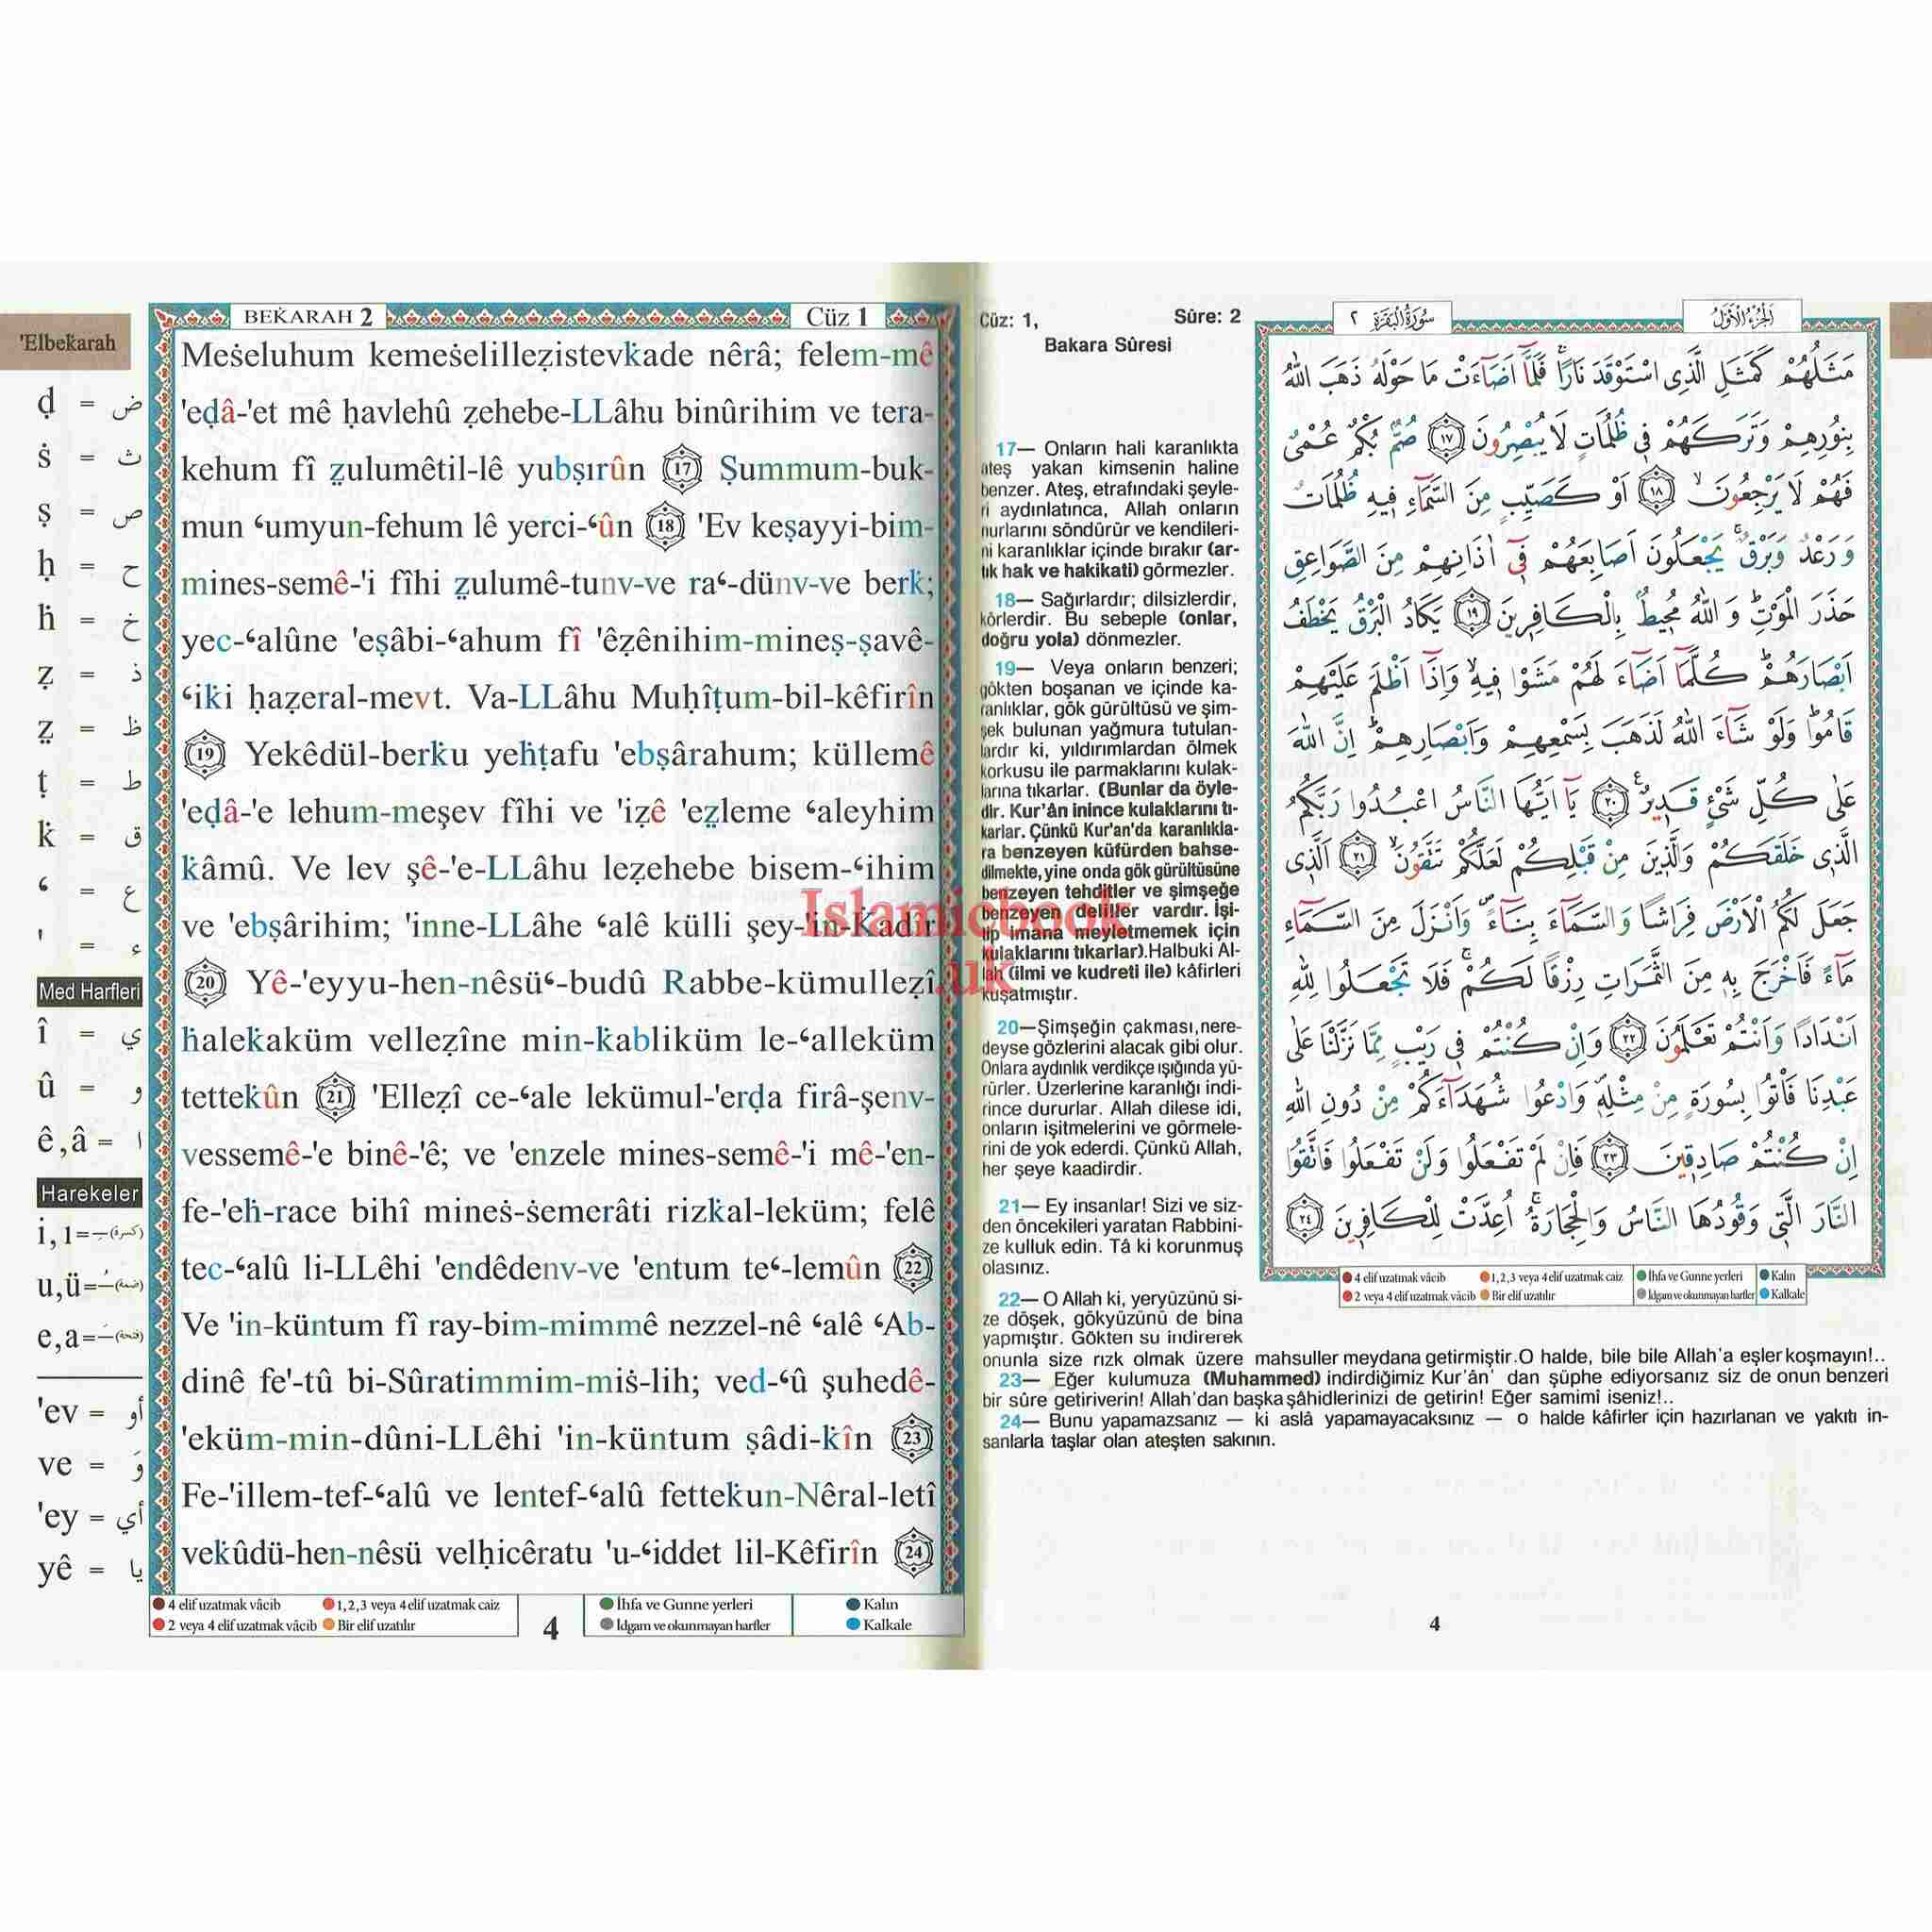 'Elbeḳarah
ḍ = ض
ṡ = ث
ṣ = ص
ḥ = ح
ḣ = خ
ẓ = ذ
ẓ = ظ
ṭ = ط
ḳ = ق
ʿ = ع
' = ء
Med Harfleri
î = ي
û = و
ê,â = ا
Harekeler
i, ı = (كسرة)
u,ü = (ضمة)
e,a = (فتحة)
'ev = أو
ve = وَ
'ey = أي
yê = يا
BEKARAH 2
Cüz 1
Meṡeluhum kemeṡelilleẓistevḳade nêrâ; felem-mê
'eḍâ-'et mê ḥavlehû ẓehebe-LLâhu binûrihim ve tera-
kehum fî ẓulumêtil-lê yubṣırûn 17 Ṣummum-buk-
mun ʿumyun-fehum lê yerci-ʿûn 18 'Ev keṣayyi-bim-
mines-semê-'i fîhi ẓulumê-tunv-ve raʿ-dünv-ve berḳ;
yec-ʿalûne 'eṣâbi-ʿahum fî 'êẓênihim-mineṣ-ṣavê-
ʿiḳi ḥaẓeral-mevt. Va-LLâhu Muḥîṭum-bil-kêfirîn
19 Yekêdül-berḳu yeḣṭafu 'ebṣârahum; küllemê
'eḍâ-'e lehum-meşev fîhi ve 'iẓê 'eẓleme ʿaleyhim
ḳâmû. Ve lev şê-'e-LLâhu leẓehebe bisem-ʿihim
ve 'ebṣârihim; 'inne-LLâhe ʿalê külli şey-'in-Ḳadîr
20 Yê-'eyyu-hen-nêsüʿ-budû Rabbe-kümulleẓî
ḣaleḳaküm velleẓîne min-ḳabliküm le-ʿalleküm
tetteḳûn 21 'Elleẓî ce-ʿale lekümul-'erḍa firâ-şenv-
vessemê-'e binê-'ê; ve 'enzele mines-semê-'i mê-'en-
fe-'eḣ-race bihî mineṡ-ṡemerâti rizḳal-leküm; felê
tec-ʿalû li-LLêhi 'endêdenv-ve 'entum teʿ-lemûn 22
Ve 'in-küntum fî ray-bim-mimmê nezzel-nê ʿalê ʿAb-
dinê fe'-tû bi-Sûratimmim-miṡ-lih; ved-ʿû şuhedê-
'eküm-min-dûni-LLêhi 'in-küntum ṣâdi-ḳîn 23
Fe-'illem-tef-ʿalû ve lentef-ʿalû fetteḳun-Nêral-letî
veḳûdü-hen-nêsü velḥicêratu 'u-ʿiddet lil-Kêfirîn 24
4 elif uzatmak vâcib
1,2,3 veya 4 elif uzatmak caiz
2 veya 4 elif uzatmak vâcib
Bir elif uzatılır
4
İhfa ve Gunne yerleri
İdgam ve okunmayan harfler
Kalın
Kalkale
Cüz: 1,
Sûre: 2
Bakara Sûresi
17— Onların hali karanlıkta
ateş yakan kimsenin haline
benzer. Ateş, etrafındaki şeyle-
ri aydınlatınca, Allah onların
nurlarını söndürür ve kendileri-
ni karanlıklar içinde bırakır (ar-
tık hak ve hakikati) görmezler.
18— Sağırlardır; dilsizlerdir,
körlerdir. Bu sebeple (onlar,
doğru yola) dönmezler.
19— Veya onların benzeri;
gökten boşanan ve içinde ka-
ranlıklar, gök gürültüsü ve şim-
şek bulunan yağmura tutulan-
lardır ki, yıldırımlardan ölmek
korkusu ile parmaklarını kulak-
larına tıkarlar. (Bunlar da öyle-
dir. Kur'ân inince kulaklarını tı-
karlar. Çünkü Kur'an'da karanlıkla-
ra benzeyen küfürden bahse-
dilmekte, yine onda gök gürültüsüne
benzeyen tehditler ve şimşeğe
benzeyen deliller vardır. İşi-
tip imana meyletmemek için
kulaklarını tıkarlar). Halbuki Al-
lah (ilmi ve kudreti ile) kâfirleri
kuşatmıştır.
20—Şimşeğin çakması, nere-
deyse gözlerini alacak gibi olur.
Onlara aydınlık verdikçe ışığında yü-
rürler. Üzerlerine karanlığı indi-
rince dururlar. Allah dilese idi,
onların işitmelerini ve görmele-
rini de yok ederdi. Çünkü Allah,
her şeye kaadirdir.
21— Ey insanlar! Sizi ve siz-
den öncekileri yaratan Rabbini-
ze kulluk edin. Tâ ki korunmuş
olasınız.
22— O Allah ki, yeryüzünü si-
ze döşek, gökyüzünü de bina
yapmıştır. Gökten su indirerek
onunla size rızk olmak üzere mahsuller meydana getirmiştir.O halde, bile bile Allah'a eşler koşmayın!..
23— Eğer kulumuza (Muhammed) indirdiğimiz Kur'ân' dan şüphe ediyorsanız siz de onun benzeri
bir sûre getiriverin! Allah'dan başka şâhidlerinizi de getirin! Eğer samimî iseniz!..
24— Bunu yapamazsanız — ki aslâ yapamayacaksınız — o halde kâfirler için hazırlanan ve yakıtı in-
sanlarla taşlar olan ateşten sakının.
سُورَةُ الْبَقَرَةِ ٢
اَلْجُزْءُ الْاَوَّلُ
مَثَلُهُمْ كَمَثَلِ الَّذِى اسْتَوْقَدَ نَارًا فَلَمَّٓا اَضَٓاءَتْ مَا حَوْلَهُ ذَهَبَ اللّٰهُ
بِنُورِهِمْ وَتَرَكَهُمْ فِى ظُلُمَاتٍ لَا يُبْصِرُونَ ١٧ صُمٌّ بُكْمٌ عُمْىٌ
فَهُمْ لَا يَرْجِعُونَ ١٨ اَوْ كَصَيِّبٍ مِنَ السَّمَٓاءِ فِيهِ ظُلُمَاتٌ
وَرَعْدٌ وَبَرْقٌ يَجْعَلُونَ اَصَابِعَهُمْ فِٓى اٰذَانِهِمْ مِنَ الصَّوَاعِقِ
حَذَرَ الْمَوْتِ وَاللّٰهُ مُحِيطٌ بِالْكَافِرِينَ ١٩ يَكَادُ الْبَرْقُ يَخْطَفُ
اَبْصَارَهُمْ كُلَّمَٓا اَضَٓاءَ لَهُمْ مَشَوْا فِيهِ وَاِذَٓا اَظْلَمَ عَلَيْهِمْ
قَامُوا وَلَوْ شَٓاءَ اللّٰهُ لَذَهَبَ بِسَمْعِهِمْ وَاَبْصَارِهِمْ اِنَّ اللّٰهَ
عَلٰى كُلِّ شَىْءٍ قَدِيرٌ ٢٠ يَٓا اَيُّهَا النَّاسُ اعْبُدُوا رَبَّكُمُ
الَّذِى خَلَقَكُمْ وَالَّذِينَ مِنْ قَبْلِكُمْ لَعَلَّكُمْ تَتَّقُونَ ٢١ اَلَّذِى
جَعَلَ لَكُمُ الْاَرْضَ فِرَاشًا وَالسَّمَٓاءَ بِنَٓاءً وَاَنْزَلَ مِنَ السَّمَٓاءِ
مَٓاءً فَاَخْرَجَ بِهِ مِنَ الثَّمَرَاتِ رِزْقًا لَكُمْ فَلَا تَجْعَلُوا لِلّٰهِ
اَنْدَادًا وَاَنْتُمْ تَعْلَمُونَ ٢٢ وَاِنْ كُنْتُمْ فِى رَيْبٍ مِمَّا نَزَّلْنَا عَلٰى
عَبْدِنَا فَأْتُوا بِسُورَةٍ مِنْ مِثْلِهِ وَادْعُوا شُهَدَٓاءَكُمْ مِنْ دُونِ اللّٰهِ
اِنْ كُنْتُمْ صَادِقِينَ ٢٣ فَاِنْ لَمْ تَفْعَلُوا وَلَنْ تَفْعَلُوا فَاتَّقُوا
النَّارَ الَّتِى وَقُودُهَا النَّاسُ وَالْحِجَارَةُ اُعِدَّتْ لِلْكَافِرِينَ ٢٤
4 elif uzatmak vâcib
1,2,3 veya 4 elif uzatmak caiz
2 veya 4 elif uzatmak vâcib
Bir elif uzatılır
İhfa ve Gunne yerleri
İdgam ve okunmayan harfler
Kalın
Kalkale
4
Islamicbook
.uk